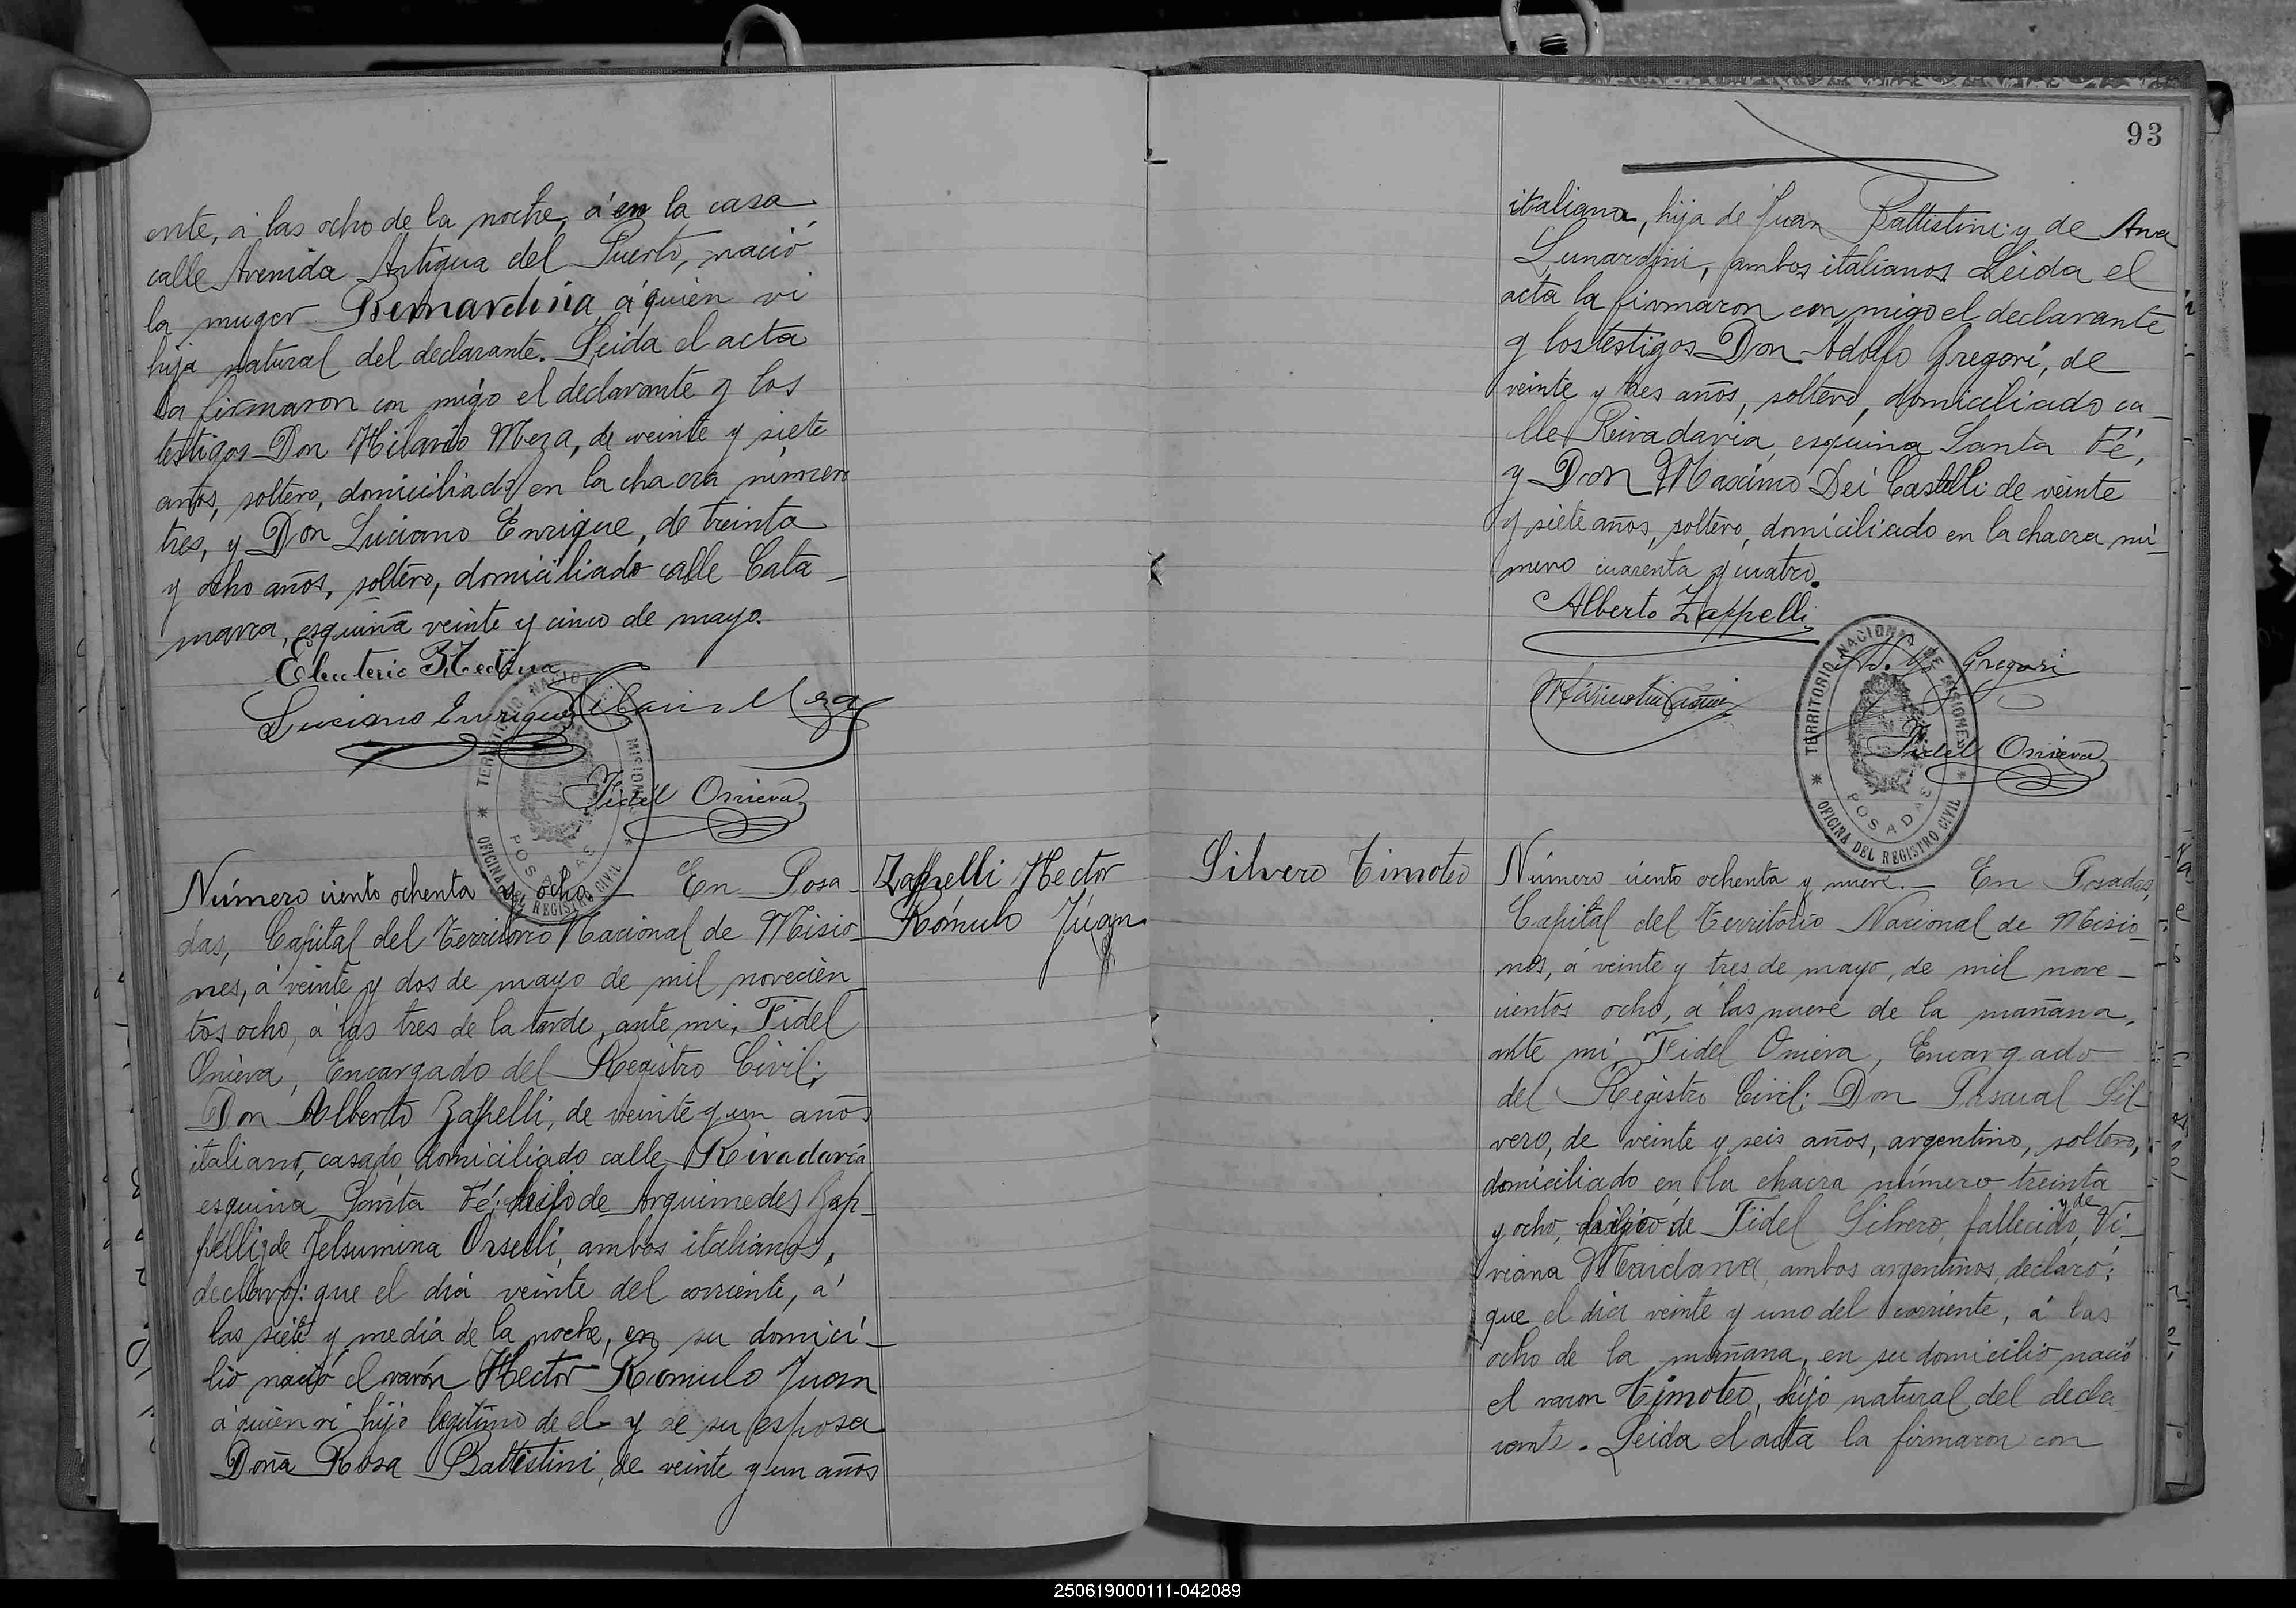 ente, á las ocho de la noche, á en la casa
calle Avenida Antigua del Puerto, nació
la muger Bernardina á quien vi
hija natural del declarante. Leida el acta
la firmaron con migo el declarante y los
testigos Don Hilario Meza, de veinte y siete
años, soltero, domiciliado en la chacra número
tres, y Don Luciano Enrique, de treinta
y ocho años, soltero, domiciliado calle Cata-
marca, esquina veinte y cinco de mayo.
Eleuterio Medina
Luciano Enrique Hilario Meza
Fidel Onieva
TERRITORIO NACIONAL DE MISIONES
POSADAS
OFICINA DEL REGISTRO CIVIL
Número ciento ochenta y ocho - En Posa-
das, Capital del Territorio Nacional de Misio-
nes, á veinte y dos de mayo de mil novecien-
tos ocho, á las tres de la tarde, ante mi, Fidel
Onieva, Encargado del Registro Civil;
Don Alberto Zappelli, de veinte y un años
italiano, casado, domiciliado calle Rivadavia
esquina Santa Fé; hijo de Arquimedes Zap-
pelli y de Jelsumina Orselli, ambos italianos,
declaró: que el dia veinte del corriente, á
las siete y media de la noche, en su domici-
lio nació el varón Hector Rómulo Juan
á quien vi hijo legitimo de el y de su esposa
Doña Rosa Battistini, de veinte y un años
Zappelli Hector
Rómulo Juan
93
italiana, hija de Juan Battistini y de Ana
Lunardini, ambos italianos. Leida el
acta la firmaron con migo el declarante
y los testigos Don Adolfo Gregori, de
veinte y tres años, soltero, domiciliado ca-
lle Rivadavia esquina Santa Fé,
y Don Maximo Dei Castelli de veinte
y siete años, soltero, domiciliado en la chacra nú-
mero cuarenta y cuatro.
Alberto Zappelli
Gregori
Fidel Onieva
TERRITORIO NACIONAL DE MISIONES
POSADAS
OFICINA DEL REGISTRO CIVIL
Silvero Timoteo
Número ciento ochenta y nueve. - En Posadas,
Capital del Territorio Nacional de Misio-
nes, á veinte y tres de mayo, de mil nove-
cientos ocho, á las nueve de la mañana,
ante mi, Fidel Onieva, Encargado
del Registro Civil; Don Pascual Sil-
vero, de veinte y seis años, argentino, soltero,
domiciliado en la chacra número treinta
y ocho, hijo de Fidel Silvero, fallecido, y de Vi-
viana Maidana, ambos argentinos, declaró:
que el dia veinte y uno del corriente, á las
ocho de la mañana, en su domicilio nació
el varon Timoteo, hijo natural del decla-
rante. Leida el acta la firmaron con
250619000111-042089